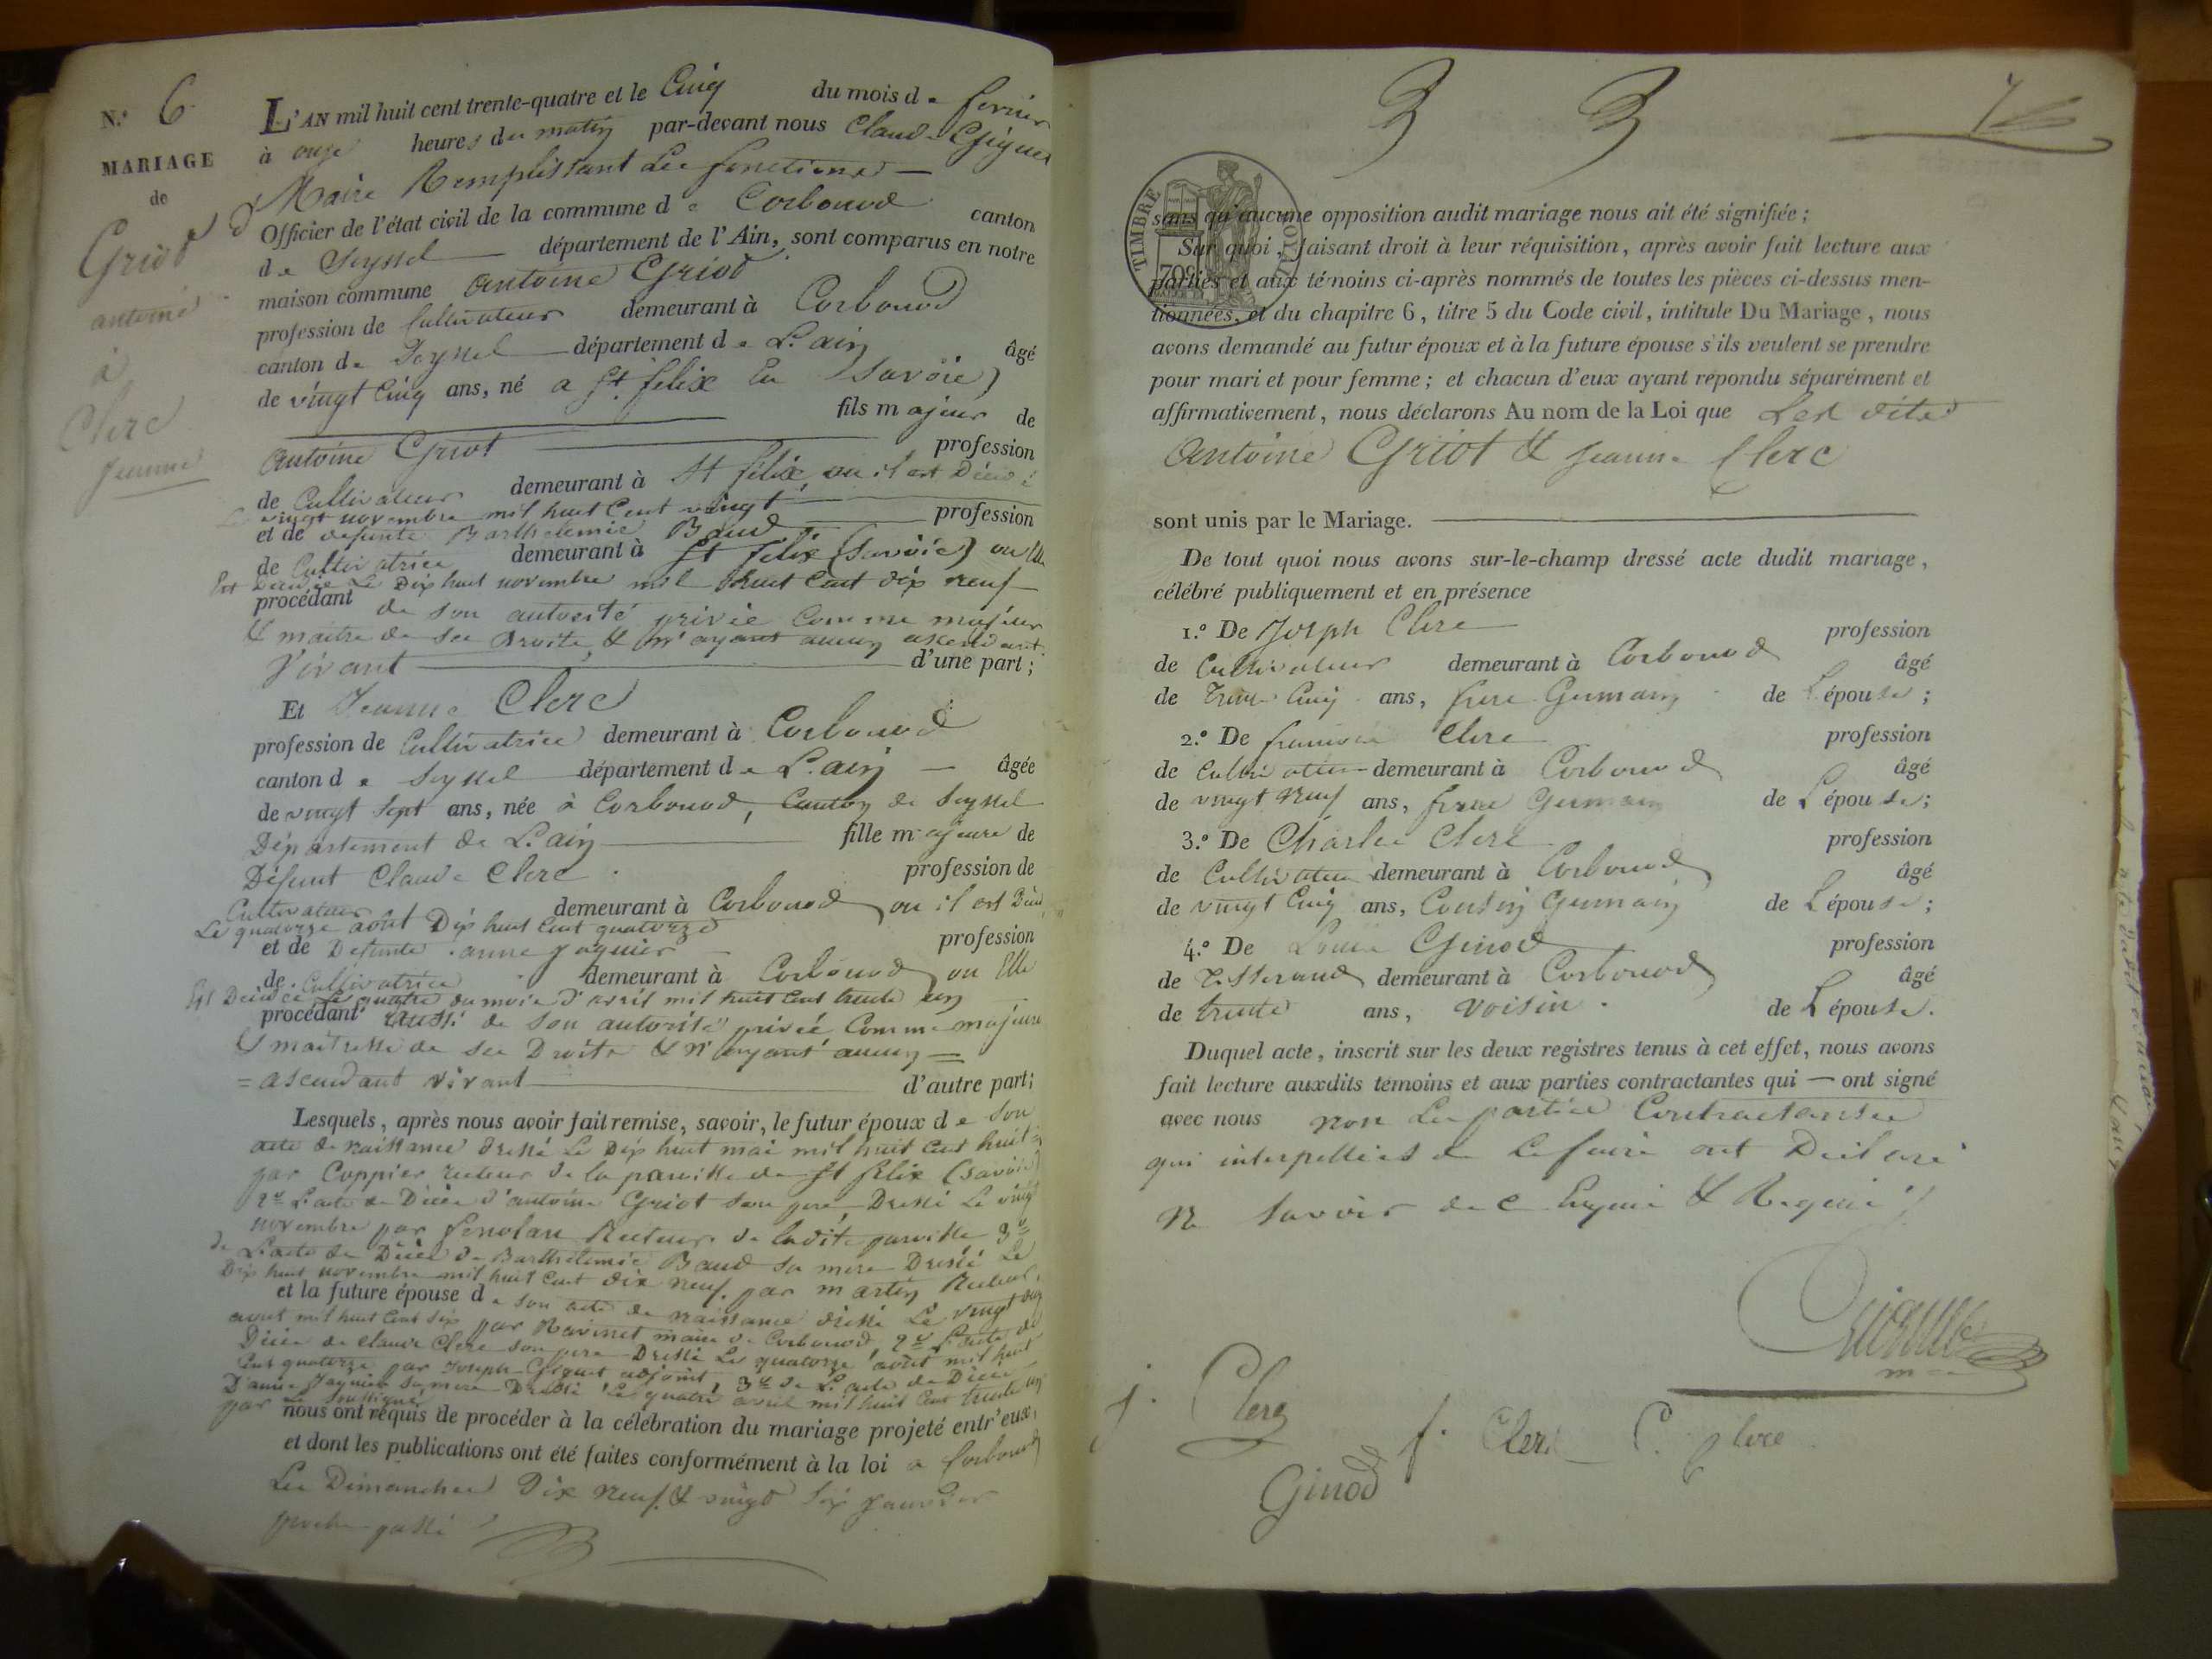 N.° 6
MARIAGE
de
Griot
antoine
à
Clerc
jeanne
L'AN mil huit cent trente-quatre et le Cinq du mois de fevrier
à onze heures du matin par-devant nous Claude
Maire Remplissant Les fonctions
Officier de l'état civil de la commune de Corbonod canton
de Seyssel département de l'Ain, sont comparus en notre
maison commune antoine Griot
profession de Cultivateur demeurant à Corbonod
canton de Seyssel département de L'ain âgé
de vingt Cinq ans, né a St. felix En (Savoie)
fils majeur de
antoine Griot profession
de Cultivateur demeurant à St félix, ou il est Décédé
Le vingt novembre mil huit Cent vingt
et de defunte Barthelemie Baud profession
de Cultivatrice demeurant à St felix (Savoie) ou Elle
Est Décédée Le Dix huit novembre mil huit Cent dix neuf
procédant de son autorité privée Comme majeur
& maitre de ses Droits, & n'ayant aucun ascendant
Vivant d'une part;
Et Jeanne Clerc
profession de Cultivatrice demeurant à Corbonod
canton de Seyssel département de L'ain âgée
de vingt Sept ans, née à Corbonod, Canton de Seyssel
Département de L'ain fille majeure de
Défunt Claude Clerc profession de
Cultivateur demeurant à Corbonod ou il est Décédé
Le quatorze août Dix huit Cent quatorze
et de Defunte anne jaquier profession
de Cultivatrice demeurant à Corbonod ou Elle
Est Décédée Le quatre du mois d'avril mil huit Cent trente un
procédant aussi de son autorité privée Comme majeure
& maitresse de ses Droits & n'ayant aucun =
= ascendant vivant d'autre part;
Lesquels, après nous avoir fait remise, savoir, le futur époux de son
acte de naissance dressé Le Dix huit mai mil huit Cent huit
par Cuppier recteur de la paroisse de St felix (Savoie)
2° L'acte de Décès d'antoine Griot son pere Dressé Le vingt
novembre par Recteur de ladite paroisse 3°
de L'acte de Décès de Barthélemie Baud sa mere Dressé Le
Dix huit novembre mil huit Cent dix neuf par martin Recteur,
et la future épouse de son acte de naissance dressé Le vingt
aout mil huit Cent six par Ravinet maire de Corbonod, 2° L'acte de
Décès de Claude Clerc son pere Dressé Le quatorze août mil huit
Cent quatorze par Joseph adjoint, 3° de L'acte de Décès
D'anne Jaquier sa mere Dressé Le quatre avril mil huit Cent trente un
par Le soussigné
nous ont requis de procéder à la célébration du mariage projeté entr'eux,
et dont les publications ont été faites conformément à la loi a Corbonod
Les Dimanches Dix neuf & vingt Six janvier
proche passé
TIMBRE ROYAL
70c
sans qu'aucune opposition audit mariage nous ait été signifiée;
Sur quoi, faisant droit à leur réquisition, après avoir fait lecture aux
parties et aux témoins ci-après nommés de toutes les pièces ci-dessus men-
tionnées, et du chapitre 6, titre 5 du Code civil, intitule Du Mariage, nous
avons demandé au futur époux et à la future épouse s'ils veulent se prendre
pour mari et pour femme; et chacun d'eux ayant répondu séparément et
affirmativement, nous déclarons Au nom de la Loi que Les dits
Antoine Griot & jeanne Clerc
sont unis par le Mariage.
De tout quoi nous avons sur-le-champ dressé acte dudit mariage,
célébré publiquement et en présence
1.° De Joseph Clerc profession
de Cultivateur demeurant à Corbonod âgé
de Trente Cinq ans, frere Germain de L'épouse;
2.° De francois Clerc profession
de Cultivateur demeurant à Corbonod âgé
de vingt neuf ans, frere Germain de L'épouse;
3.° De Charles Clerc profession
de Cultivateur demeurant à Corbonod âgé
de vingt Cinq ans, Cousin Germain de L'épouse;
4.° De Louis Ginod profession
de Tisserand demeurant à Corbonod âgé
de trente ans, voisin de L'épouse.
Duquel acte, inscrit sur les deux registres tenus à cet effet, nous avons
fait lecture auxdits témoins et aux parties contractantes qui — ont signé
avec nous non Les parties Contractantes
qui interpellées de Le faire ont Déclaré
ne Savoir de Ce Enquis & Requis
j. Clerc
f. Clerc C. Clerc
Ginod